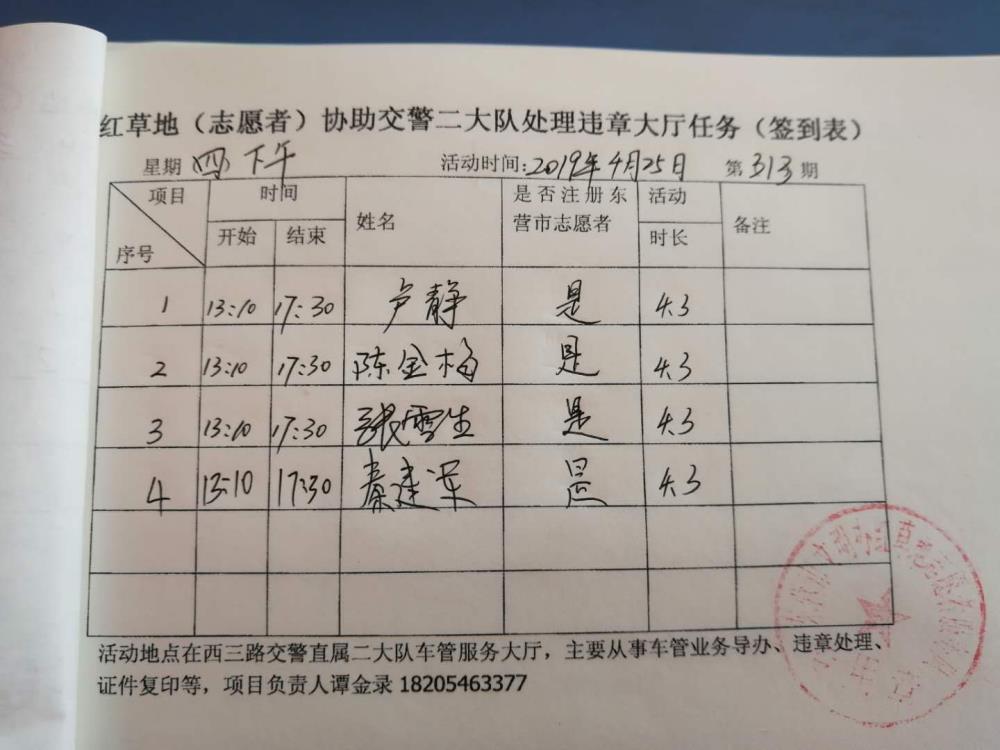 红草地（志愿者）协助交警二大队处理违章大厅任务（签到表）
星期 四 下午 活动时间：2019年4月25日 第 313 期
项目 时间 姓名 是否注册东营市志愿者 活动时长 备注
序号 开始 结束
1 13:10 17:30 卢静 是 4.3
2 13:10 17:30 陈金梅 是 4.3
3 13:10 17:30 张雪生 是 4.3
4 13:10 17:30 秦建 是 4.3
活动地点在西三路交警直属二大队车管服务大厅，主要从事车管业务导办、违章处理、
证件复印等，项目负责人谭金录 18205463377